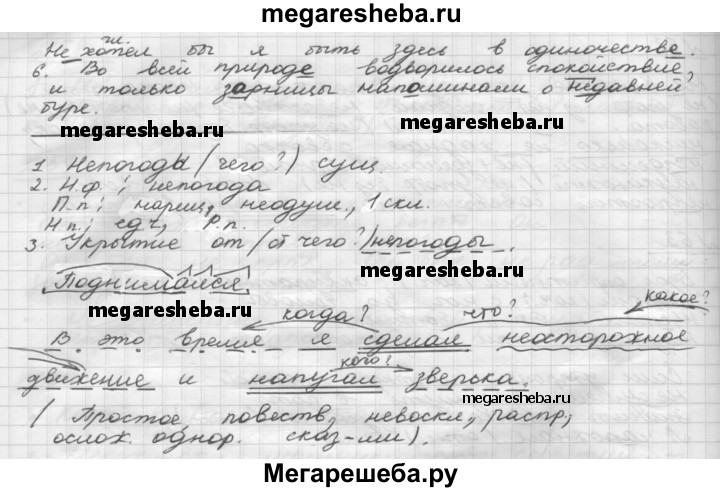 megaresheba.ru
чи.
Не хотел бы я быть здесь в одиночестве.
6. Во всей природе водворилось спокойствие,
и только зарницы напоминали о недавней
буре.
megaresheba.ru megaresheba.ru
1 Непогоды (чего?) сущ.
2. Н.ф.; непогода
П.п; нариц, неодуш., 1 скл.
Н.п; ед.ч, Р.п.
3. Укрытие от (от чего?) непогоды.
Поднимался.
megaresheba.ru megaresheba.ru
когда? что? какое?
В это время я сделал неосторожное
кого?
движение и напугал зверька.
megaresheba.ru
(Простое, повеств, невоскл, распр,
ослож. однор. сказ-ми).
Мегарешеба.ру